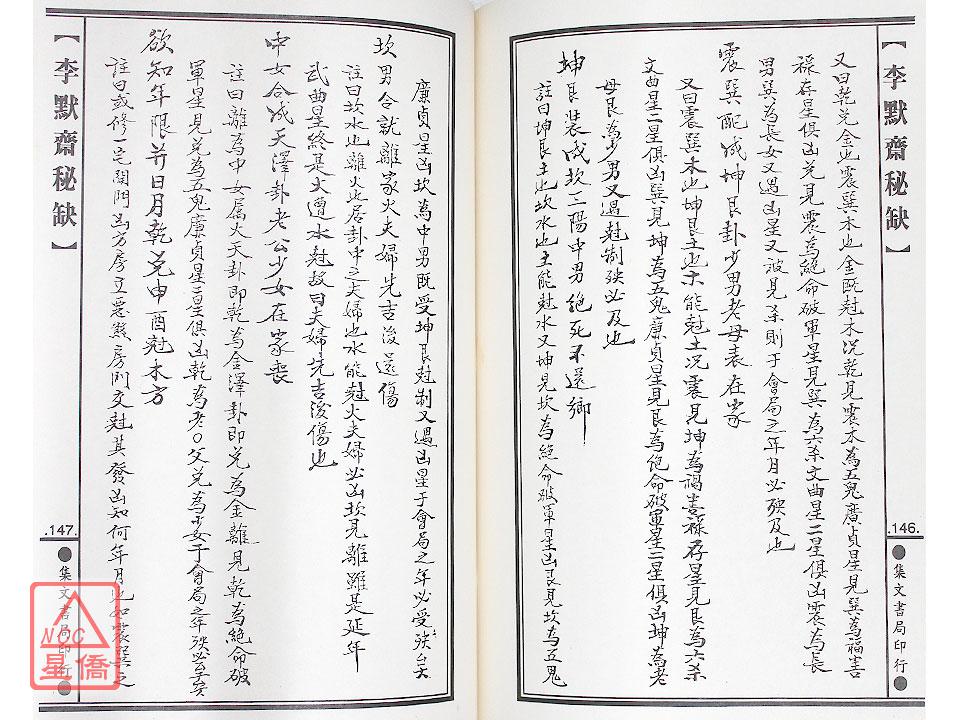 【李默齋秘缺】
又曰乾兌金也震巽木也金既尅木況乾見震木為五鬼廣貞星見巽為福害
祿存星俱凶兌見震為絕命破軍星見巽為六杀文曲星二星俱凶震為長
男巽為長女又遇凶星又被見杀則于會局之年月必殃及也
震巽配成坤艮卦少男老母丧在家
又曰震巽木也坤艮土也木能尅土況震見坤為禍害祿存星見艮為六杀
文曲星二星俱凶巽見坤為五鬼廉貞星見艮為絕命破軍星二星俱凶坤為老
母艮為少男又遇尅制殃必及也
坤艮裝成坎二陽中男絕死不還鄉
註曰坤艮土也坎水也土能尅水又坤見坎為絕命破軍星凶艮見坎為五鬼
.146.
●集文書局印行●
廉貞星凶坎為中男既受坤艮尅制又遇凶星于會局之年必受殃
坎男合就離家火夫婦先吉後還傷
註曰坎水也離火也居卦中之夫婦也水能尅火夫婦必凶坎見離雖是延年
武曲星終是火遭水尅故曰夫婦先吉後傷也
中女合成天澤卦老公少女在家喪
註曰離為中女屬火天卦即乾為金澤卦即兌為金離見乾為絕命破
軍星見兌為五鬼廉貞星二星俱凶乾為老○父兌為少女于會局之年殃必
欲知年限并日月乾兌申酉尅木方
註曰或修一宅開門凶方房立惡煞房門交尅其發凶如何年月也如震巽之
【李默齋秘缺】
.147.
●集文書局印行●
NCC
星僑